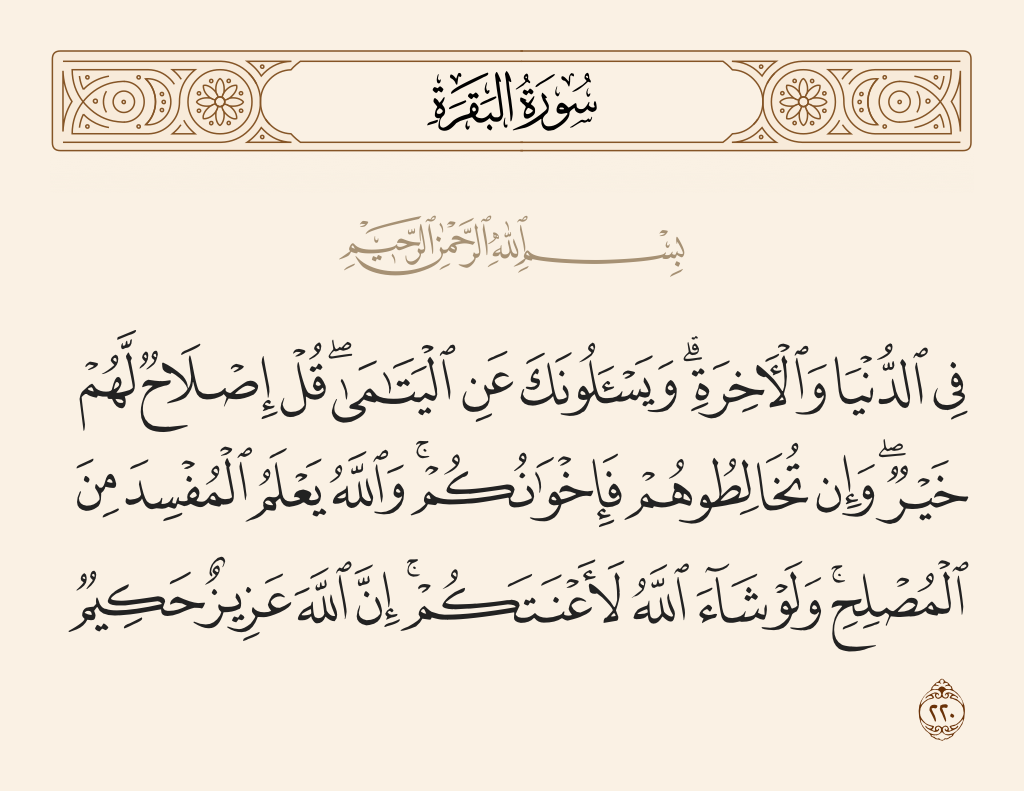 سُورَةُ البَقَرَةِ
بِسْمِ ٱللَّهِ ٱلرَّحْمَٰنِ ٱلرَّحِيمِ
فِى ٱلدُّنْيَا وَٱلْـَٔاخِرَةِ ۗ وَيَسْـَٔلُونَكَ عَنِ ٱلْيَتَـٰمَىٰ ۖ قُلْ إِصْلَاحٌ لَّهُمْ
خَيْرٌ ۖ وَإِن تُخَالِطُوهُمْ فَإِخْوَٰنُكُمْ ۚ وَٱللَّهُ يَعْلَمُ ٱلْمُفْسِدَ مِنَ
ٱلْمُصْلِحِ ۚ وَلَوْ شَآءَ ٱللَّهُ لَأَعْنَتَكُمْ ۚ إِنَّ ٱللَّهَ عَزِيزٌ حَكِيمٌ
٢٢٠